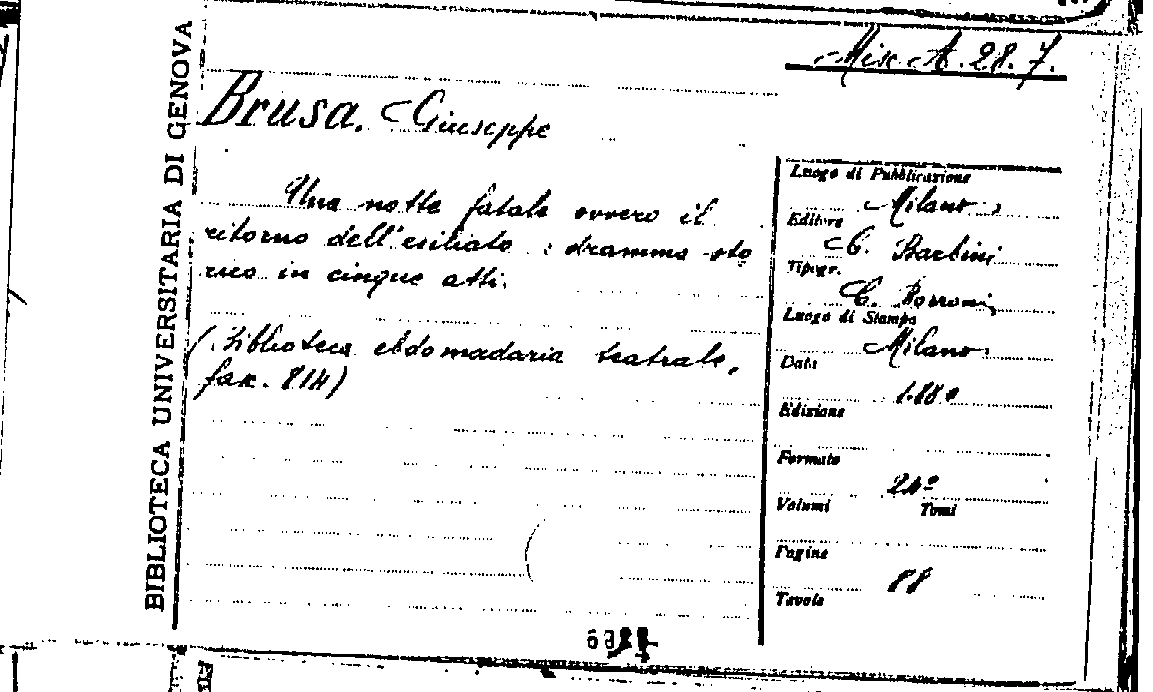 Misc. A. 28. 7.
BIBLIOTECA UNIVERSITARIA DI GENOVA
Brusa, Giuseppe
Una notte fatale ovvero il
ritorno dell'esiliato : dramma sto
rico in cinque atti.
(Biblioteca ebdomadaria teatrale,
fasc. 814)
Luogo di Pubblicazione
Milano
Editore
C. Barbini
Tipogr.
C.
Luogo di Stampa
Milano
Data
Edizione
Formato
24º
Volumi Tomi
Pagine
88
Tavole